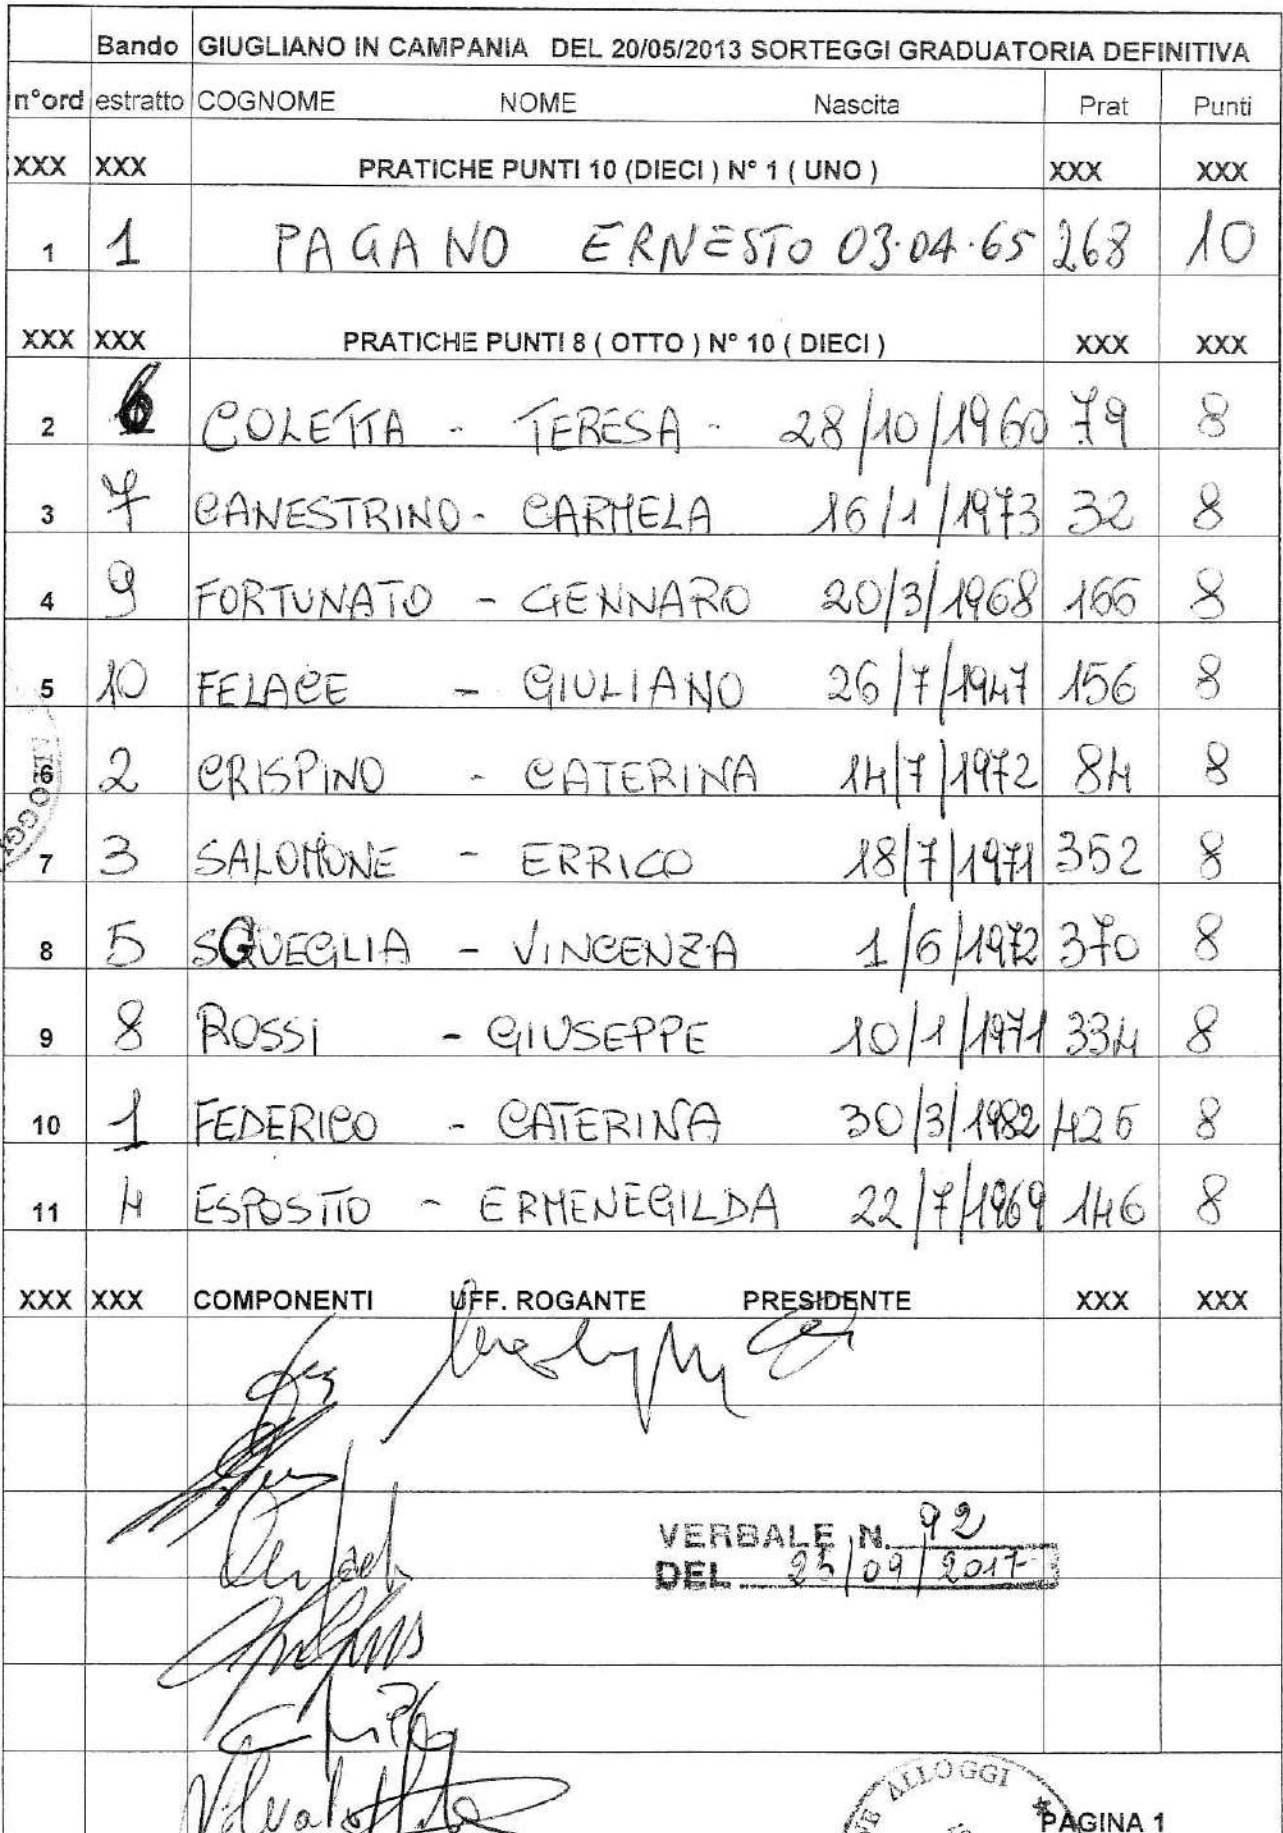 Bando GIUGLIANO IN CAMPANIA DEL 20/05/2013 SORTEGGI GRADUATORIA DEFINITIVA
n°ord estratto COGNOME NOME Nascita Prat Punti
XXX XXX PRATICHE PUNTI 10 (DIECI ) N° 1 ( UNO ) XXX XXX
1 1 PAGANO ERNESTO 03.04.65 268 10
XXX XXX PRATICHE PUNTI 8 ( OTTO ) N° 10 ( DIECI ) XXX XXX
2 6 COLETTA - TERESA - 28/10/1960 79 8
3 7 CANESTRINO - CARMELA 16/1/1973 32 8
4 9 FORTUNATO - GENNARO 20/3/1968 166 8
5 10 FELACE - GIULIANO 26/7/1947 156 8
6 2 CRISPINO - CATERINA 14/7/1972 84 8
7 3 SALOMONE - ERRICO 18/7/1971 352 8
8 5 SGUEGLIA - VINCENZA 1/6/1972 370 8
9 8 ROSSI - GIUSEPPE 10/1/1971 334 8
10 1 FEDERICO - CATERINA 30/3/1982 426 8
11 4 ESPOSITO - ERMENEGILDA 22/7/1969 146 8
XXX XXX COMPONENTI UFF. ROGANTE PRESIDENTE XXX XXX
VERBALE N. 92
DEL /09/2017
ALLOGGI
PAGINA 1